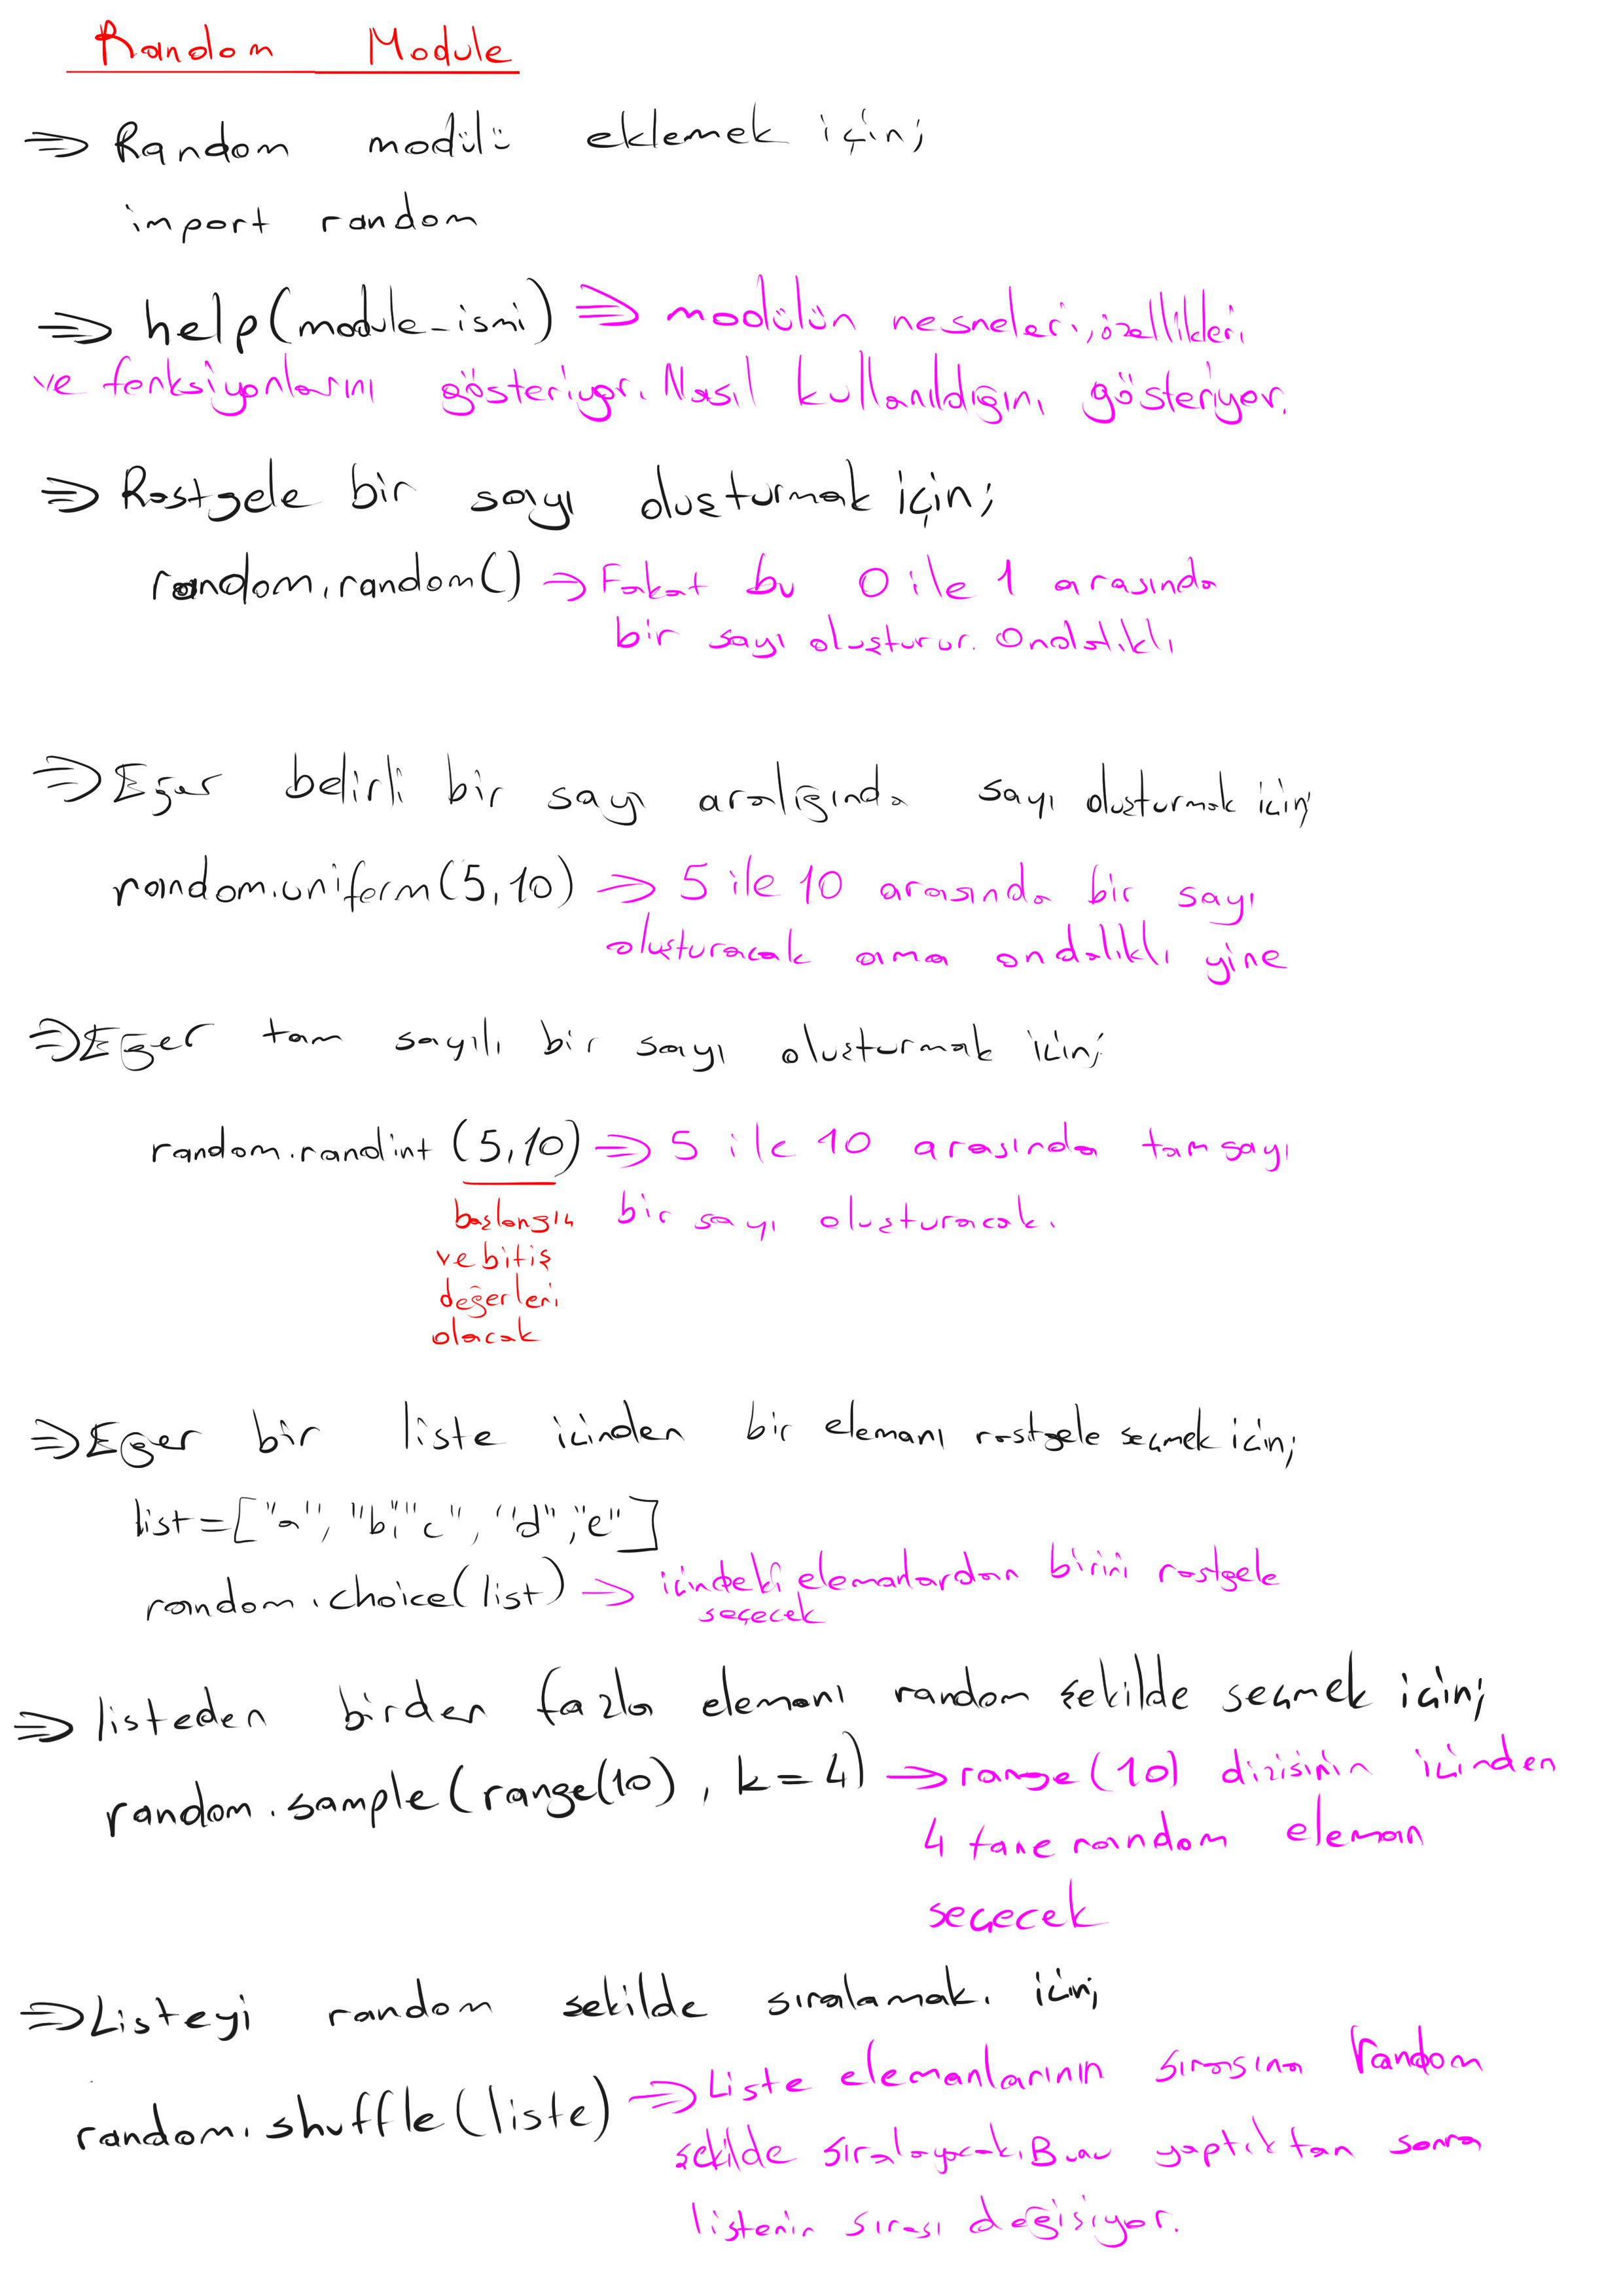 Random Module
⇒ Random modülü eklemek için;
import random
⇒ help(module_ismi) ⇒ modülün nesneleri, özellikleri
ve fonksiyonlarını gösteriyor. Nasıl kullanıldığını gösteriyor.
⇒ Rastgele bir sayı oluşturmak için;
random.random() → Fakat bu 0 ile 1 arasında
bir sayı oluşturur. Ondalıklı
⇒ Eğer belirli bir sayı aralığında sayı oluşturmak için
random.uniform(5,10) → 5 ile 10 arasında bir sayı
oluşturacak ama ondalıklı yine
⇒ Eğer tam sayılı bir sayı oluşturmak için;
random.randint (5,10) ⇒ 5 ile 10 arasında tam sayı
başlangıç bir sayı oluşturacak.
ve bitiş
değerleri
olacak
⇒ Eğer bir liste içinden bir elemanı rastgele seçmek için;
list=["a", "b","c", "d","e"]
random.choice(list) → içindeki elemanlardan birini rastgele
seçecek
⇒ listeden birden fazla elemanı random şekilde seçmek için;
random.sample(range(10), k=4) → range(10) dizisinin içinden
4 tane random eleman
seçecek
⇒ Listeyi random şekilde sıralamak. için;
random.shuffle(liste) ⇒ Liste elemanlarının sırasına random
şekilde sıralayacak. Bunu yaptıktan sonra
listenin sırası değişiyor.